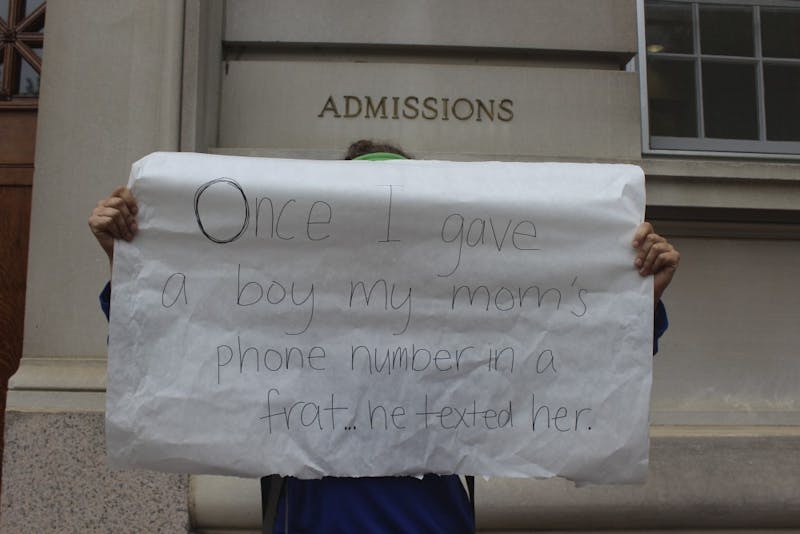 ADMISSIONS
Once I gave
a boy my mom's
phone number in a
frat... he texted her.